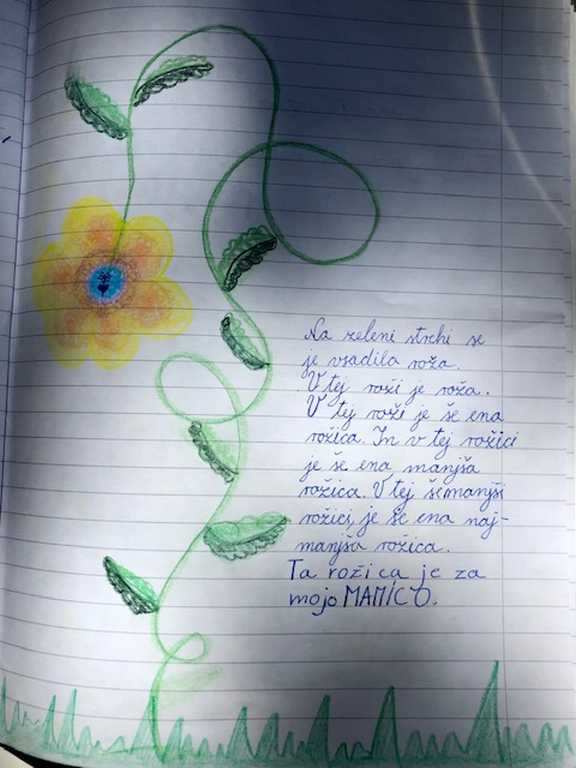 Na zeleni strehi se
je vsadila roža.
V tej roži je roža.
V tej roži je še ena
rožica. In v tej rožici
je še ena manjša
rožica. V tej še manjši
rožici je še ena naj-
manjša rožica.
Ta rožica je za
mojo MAMICO.